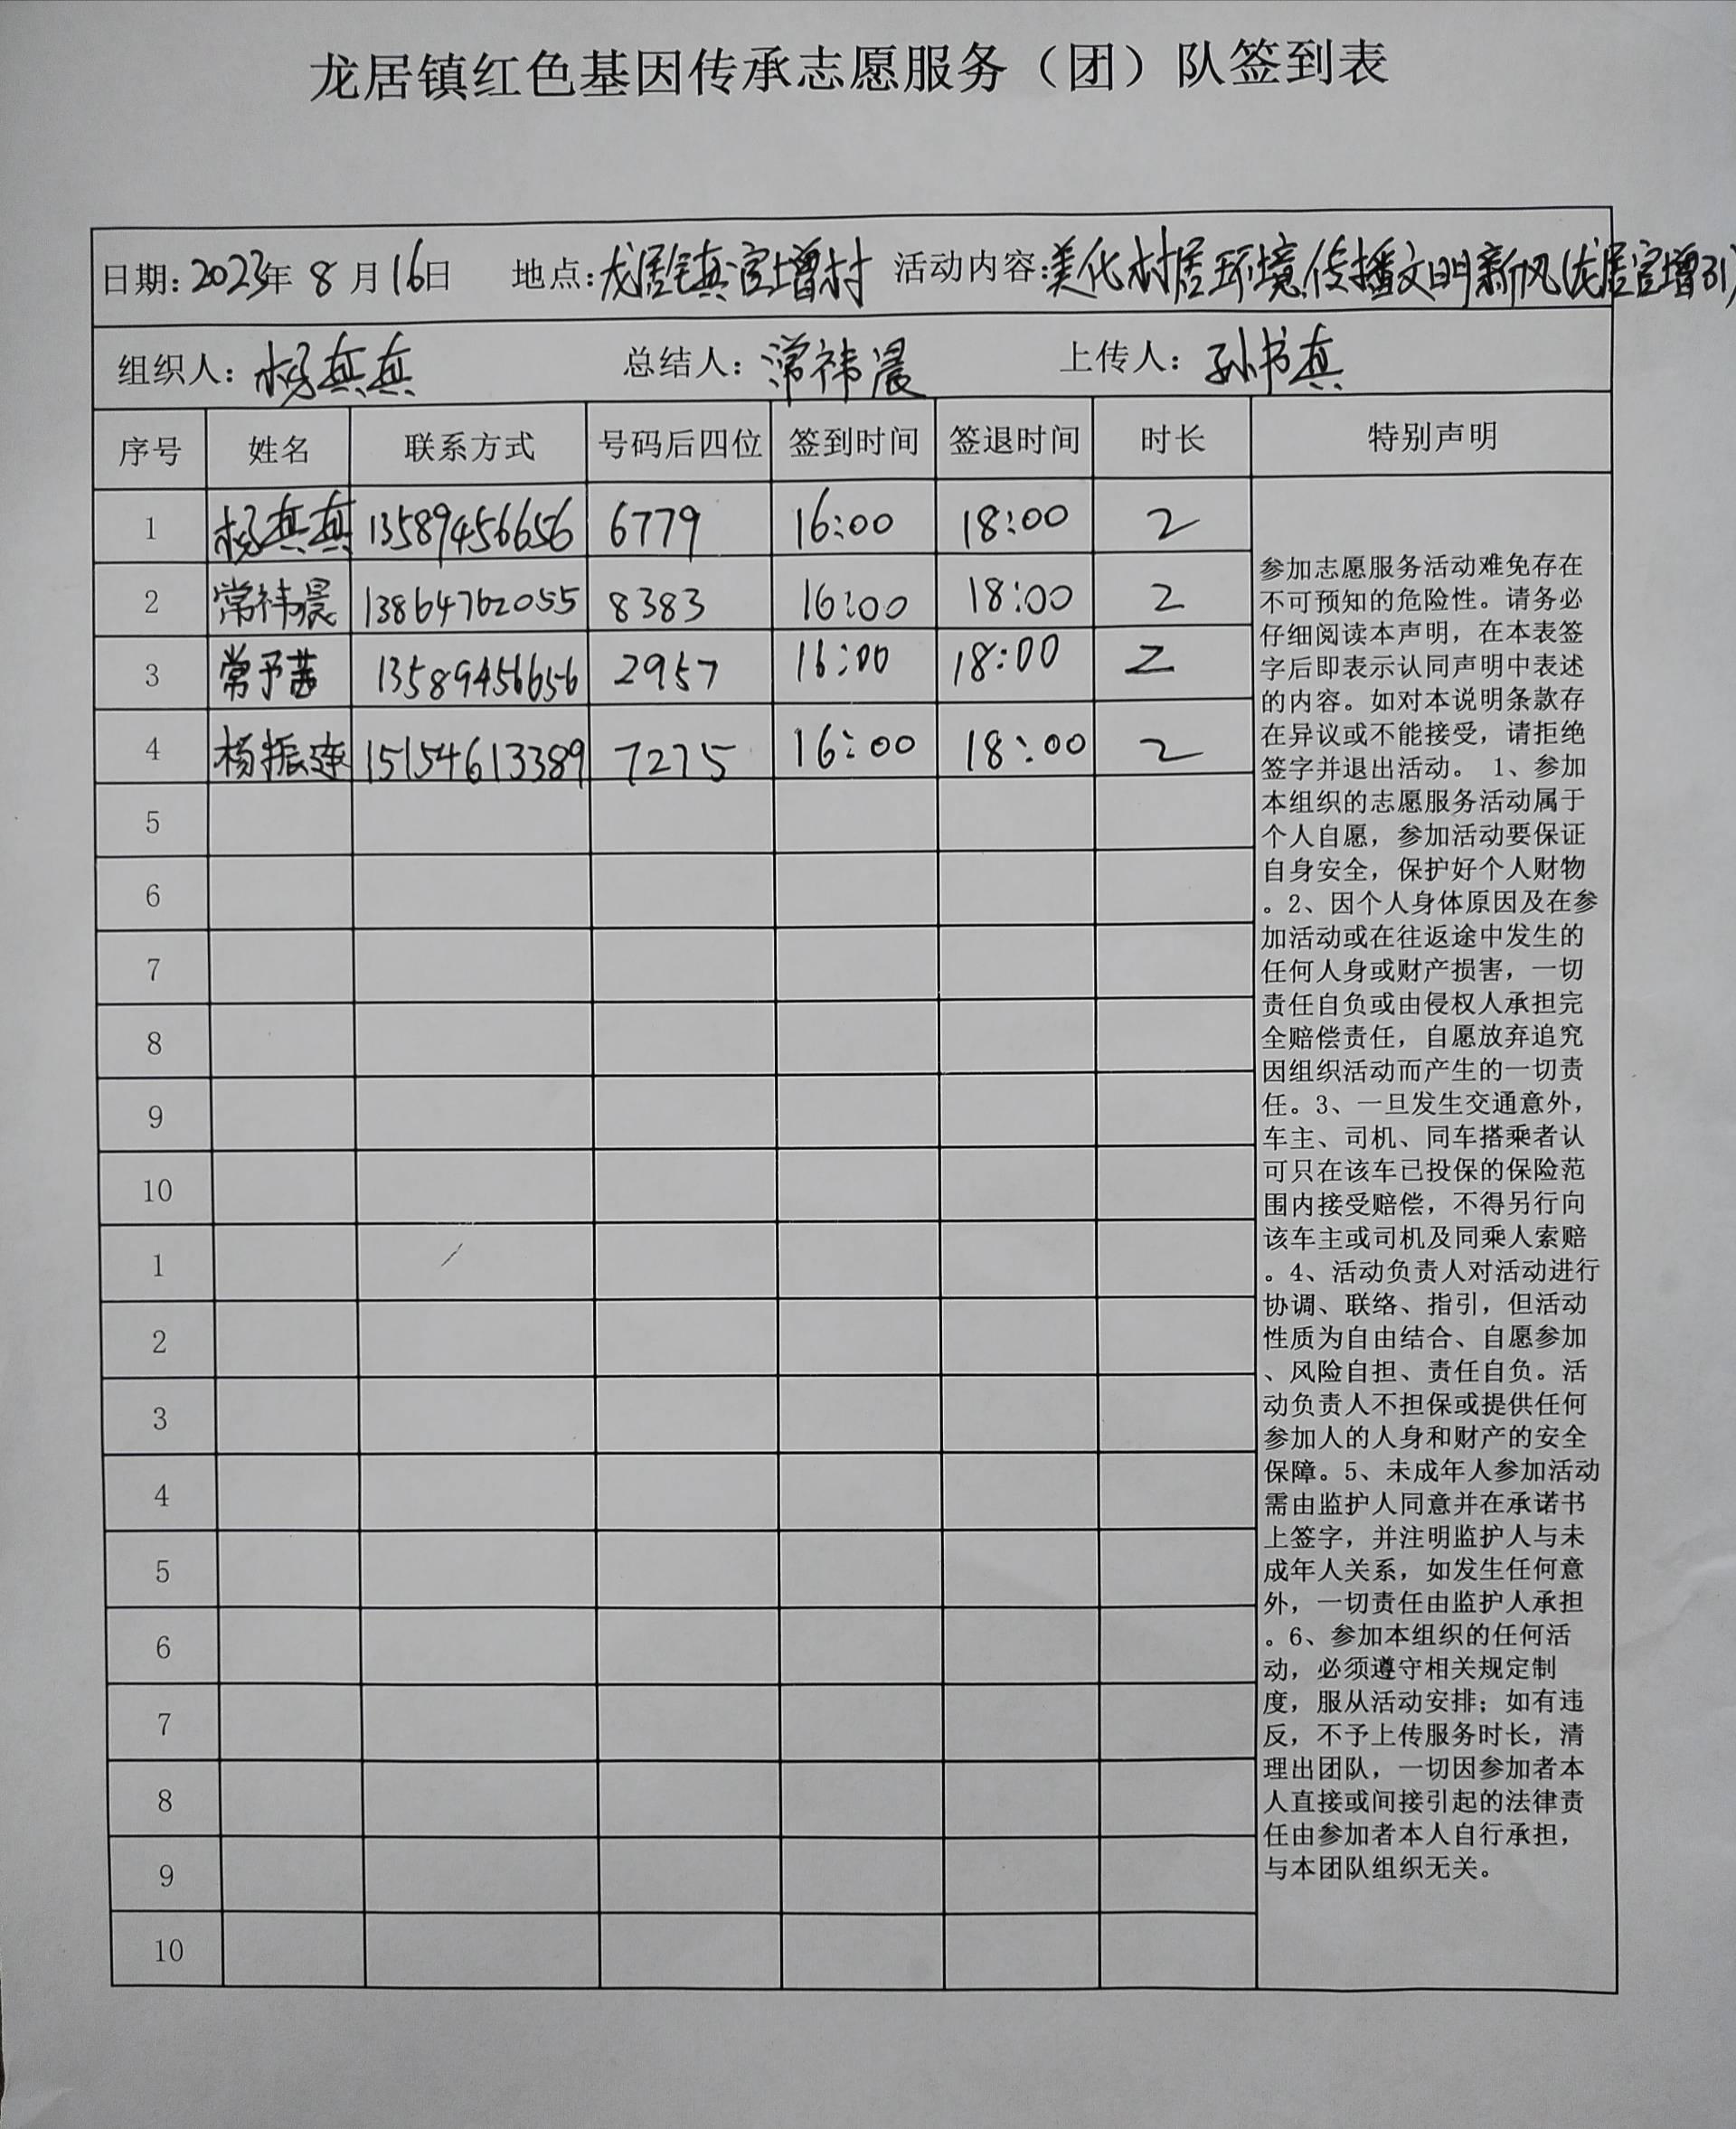 龙居镇红色基因传承志愿服务（团）队签到表
日期：2023年 8 月 16日 地点：龙居镇宫增村 活动内容：美化村居环境，传播文明新风(龙居宫增31)
组织人：杨真真 总结人：常祎晨 上传人：孙书真
序号 姓名 联系方式 号码后四位 签到时间 签退时间 时长 特别声明
1 杨真真 13589456656 6779 16:00 18:00 2
2 常祎晨 13864762055 8383 16:00 18:00 2
3 常予茜 13589456656 2957 16:00 18:00 2
4 杨振连 15154613389 7275 16:00 18:00 2
5
6
7
8
9
10
1
2
3
4
5
6
7
8
9
10
参加志愿服务活动难免存在
不可预知的危险性。请务必
仔细阅读本声明，在本表签
字后即表示认同声明中表述
的内容。如对本说明条款存
在异议或不能接受，请拒绝
签字并退出活动。 1、参加
本组织的志愿服务活动属于
个人自愿，参加活动要保证
自身安全，保护好个人财物
。2、因个人身体原因及在参
加活动或在往返途中发生的
任何人身或财产损害，一切
责任自负或由侵权人承担完
全赔偿责任，自愿放弃追究
因组织活动而产生的一切责
任。3、一旦发生交通意外，
车主、司机、同车搭乘者认
可只在该车已投保的保险范
围内接受赔偿，不得另行向
该车主或司机及同乘人索赔
。4、活动负责人对活动进行
协调、联络、指引，但活动
性质为自由结合、自愿参加
、风险自担、责任自负。活
动负责人不担保或提供任何
参加人的人身和财产的安全
保障。5、未成年人参加活动
需由监护人同意并在承诺书
上签字，并注明监护人与未
成年人关系，如发生任何意
外，一切责任由监护人承担
。6、参加本组织的任何活
动，必须遵守相关规定制
度，服从活动安排；如有违
反，不予上传服务时长，清
理出团队，一切因参加者本
人直接或间接引起的法律责
任由参加者本人自行承担，
与本团队组织无关。